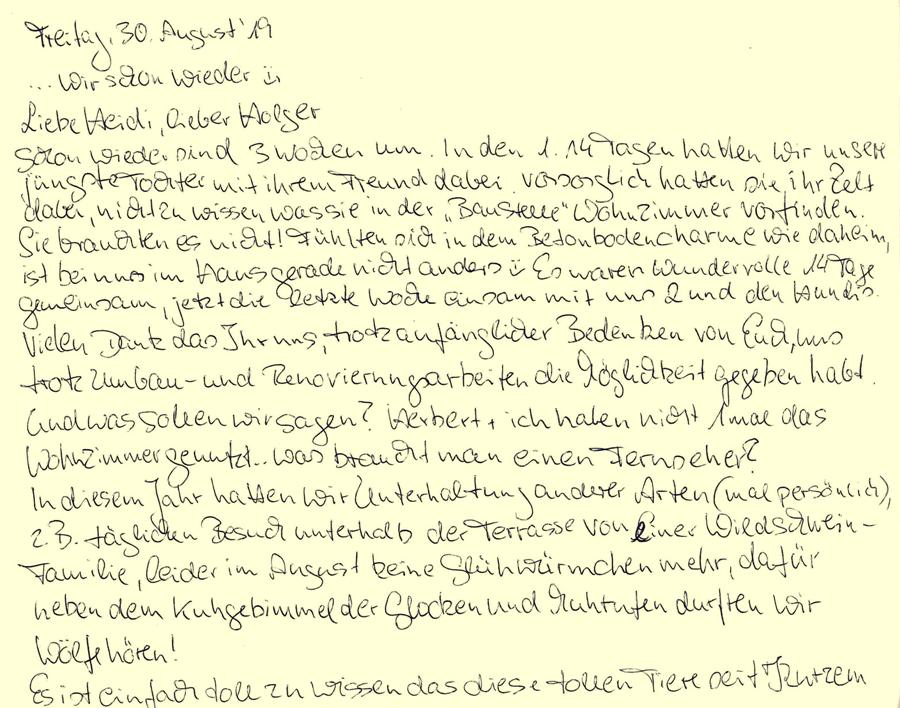 Freitag, 30. August '19
... wir schon wieder ü
Liebe Heidi, lieber Holger
Schon wieder sind 3 Wochen um. In den 1. 14 Tagen hatten wir unsere
jüngste Tochter mit ihrem Freund dabei vorsorglich hatten sie, ihr Zelt
dabei, nicht zu wissen was sie in der „Baustelle" Wohnzimmer vorfinden.
Sie brauchten es nicht! Fühlten sich in dem Betonbodencharme wie daheim,
ist bei uns im Haus gerade nicht anders ü Es waren wundervolle 14 Tage
gemeinsam, jetzt die letzte Woche einsam mit uns 2 und den Hundis.
Vielen Dank das Ihr uns, trotz anfänglicher Bedenken von Euch, uns
trotz Umbau- und Renovierungsarbeiten die Möglichkeit gegeben habt.
Und was sollen wir sagen? Herbert + ich haben nicht 1mal das
Wohnzimmer genutzt.. was braucht man einen Fernseher?
In diesem Jahr hatten wir Unterhaltung anderer Arten (mal persönlich),
z.B. täglichen Besuch unterhalb der Terrasse von einer Wildschwein-
Familie, leider im August keine Glühwürmchen mehr, dafür
neben dem Kuhgebimmel der Glocken und durften wir
Wölfe hören!
Es ist einfach toll zu wissen das diese tollen Tiere seit Kurzem